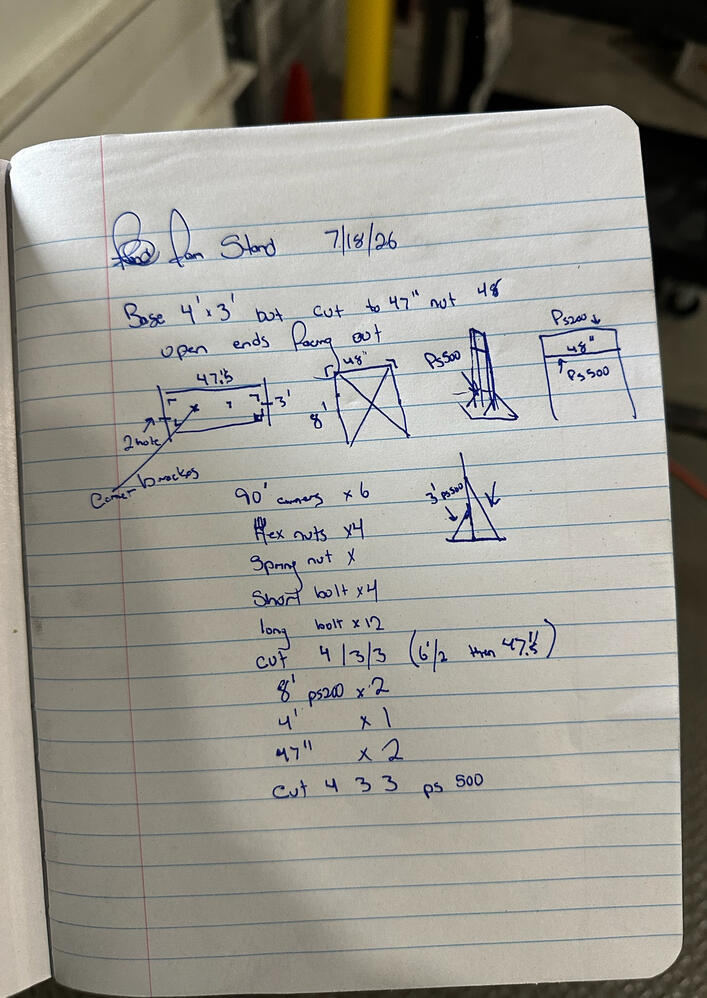 Fan Stand 7/18/26
Base 4' x 3' but cut to 47" not 48
open ends facing out
47.5 3' 2 hole Corner brackets
48" 8'
PS500
PS200 48" PS500
3' PS500
90° corners x 6
Hex nuts x4
Spring nut x
Short bolt x4
long bolt x12
cut 4/3/3 (6'/2 then 47.5")
8' PS200 x 2
4' x 1
47" x 2
cut 4 3 3 ps 500